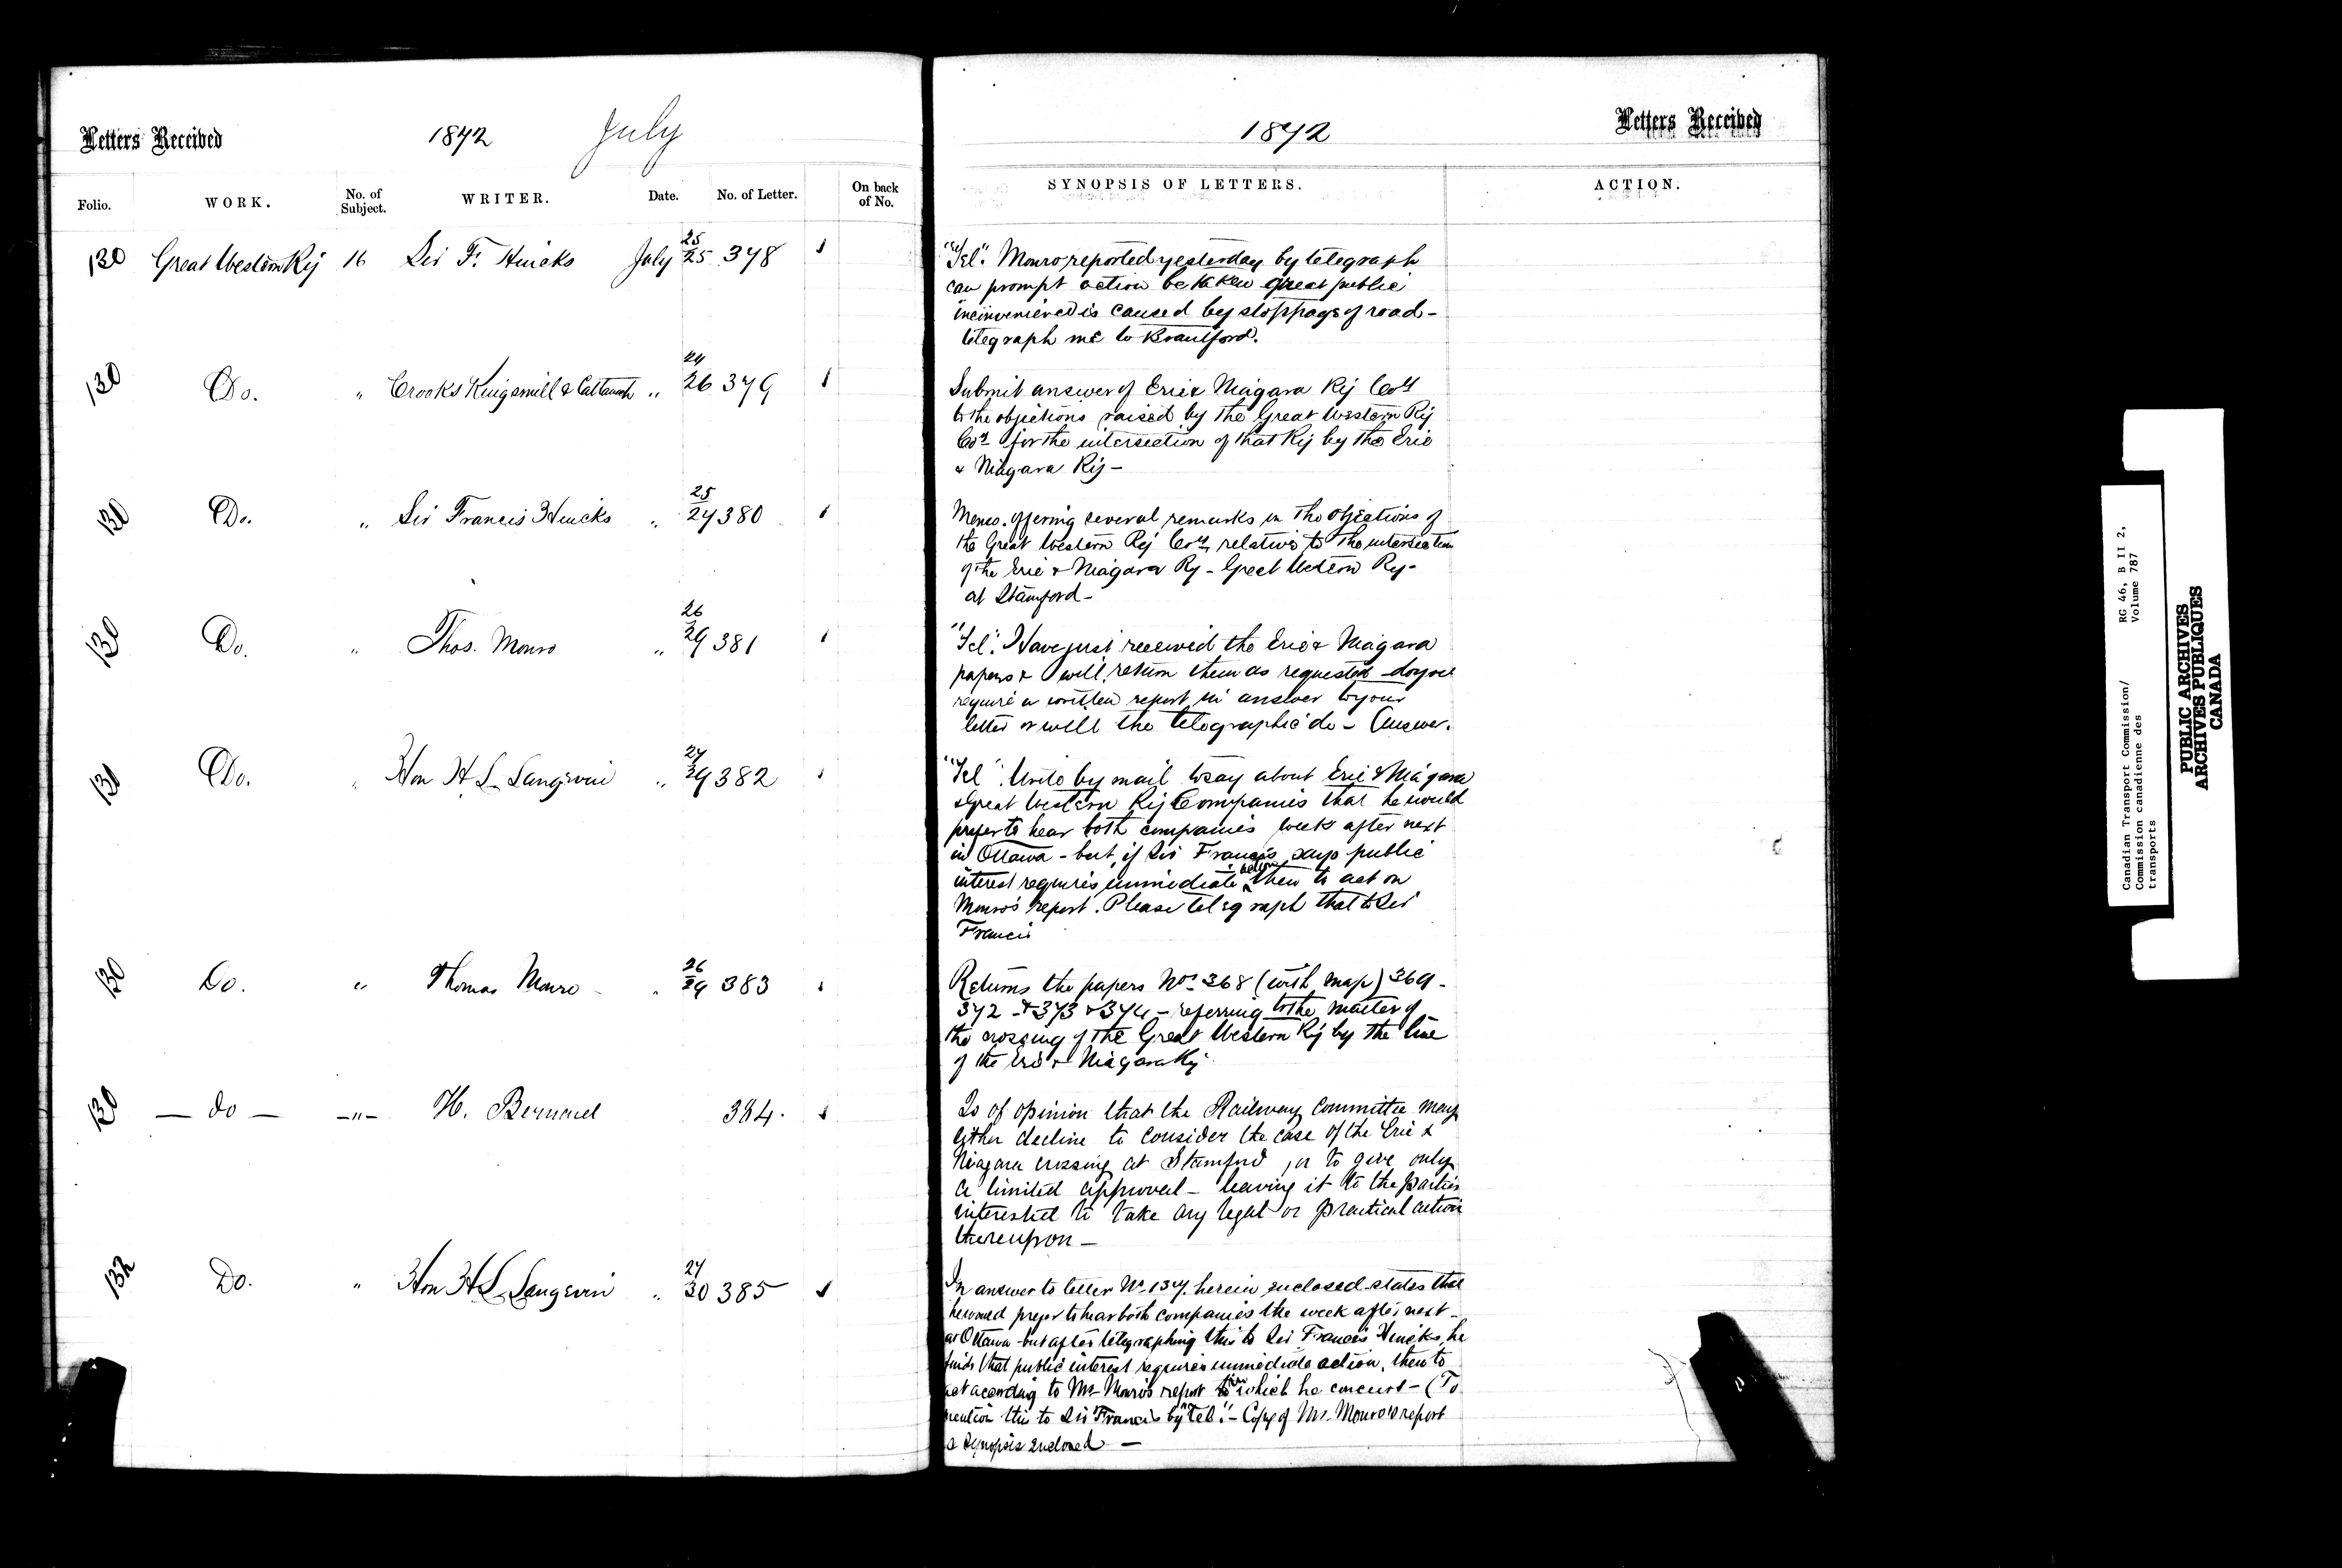 Letters Received 1872 July
Folio. WORK. No. of Subject. WRITER. Date. No. of Letter. On back of No.
130 Great Western Ry 16 Sir F. Hincks July 25/25 378
130 Do. " Crooks Kingsmill & Cattanach " 24/26 379
130 Do. " Sir Francis Hincks " 25/27 380
130 Do. " Thos. Monro " 26/29 381
130 Do. " Hon H L Langevin " 27/29 382
130 Do. " Thomas Monro " 26/29 383
130 — do — —"— H. Bernard 384.
132 Do. " Hon H L Langevin " 27/30 385
1872 Letters Received
SYNOPSIS OF LETTERS. ACTION.
"Tel". Monro reported yesterday by telegraph
can prompt action be taken great public
inconvenience is caused by stoppage of road –
telegraph me to Brantford.
Submit answer of Erie & Niagara Ry Coy
to the objections raised by the Great Western Ry
Coy for the intersection of that Ry by the Erie
& Niagara Ry –
Memo. offering several remarks on the objections of
the Great Western Ry Coy relative to the intersection
of the Erie & Niagara Ry – Great Western Ry –
at Stamford –
"Tel". Have just received the Erie & Niagara
papers & will return them as requested – do you
require a written report in answer to your
letter or will the telegraphic do – Answer.
"Tel". Write by mail to say about Erie & Niagara
& Great Western Ry Companies that he would
prefer to hear both companies week after next
in Ottawa – but if Sir Francis says public
interest requires immediate action then to act on
Monro's report. Please telegraph that to Sir
Francis
Returns the papers Nos 368 (with map) 369 –
372 – & 373 & 374 – referring to the matter of
the crossing of the Great Western Ry by the line
of the Erie & Niagara Ry
Is of opinion that the Railway Committee may
either decline to consider the case of the Erie &
Niagara crossing at Stamford, or to give only
a limited approval – leaving it to the parties
interested to take any legal or practical action
thereupon –
In answer to letter No 137 herein enclosed states that
he would prefer to hear both companies the week after next –
at Ottawa – but after telegraphing this to Sir Francis Hincks, he
finds that public interest requires immediate action, then to
act according to Mr Monro's report in which he concurs – (To
mention this to Sir Francis by "Tel". – Copy of Mr. Monro's report
& synopsis enclosed –
Canadian Transport Commission/ RG 46, B II 2,
Commission canadienne des Volume 787
transports
PUBLIC ARCHIVES
ARCHIVES PUBLIQUES
CANADA